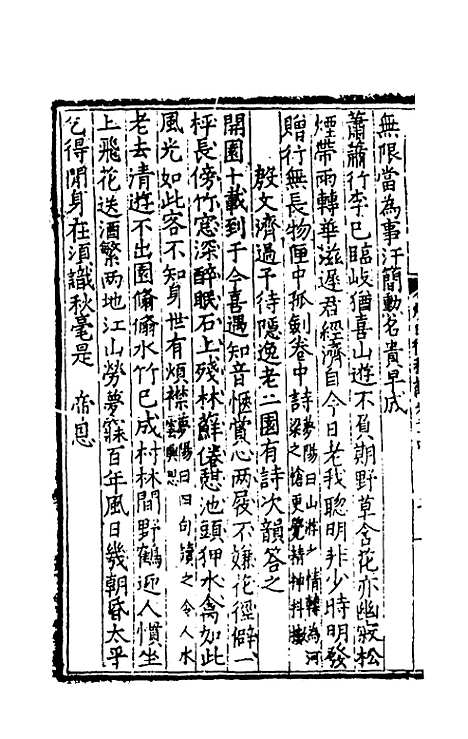 無限當為事汗簡勳名貴早成
蕭蕭行李已臨岐猶喜山遊不負期野草含花亦幽寂松
煙帶雨轉華滋遲君經濟自今日老我聰明非少時明發
贈行無長物匣中孤劍卷中詩夢陽曰山游之情轉為河梁之愴更覺精神抖擻
殷文濟過予待隱逸老二園有詩次韻答之
開園十載到于今喜遇知音愜賞心兩屐不嫌花徑僻一
枰長傍竹窓深醉眠石上殘林蘚倦憇池頭狎水禽如此
風光如此客不知身世有煩襟夢陽曰句讀之令人水雲興思
老去清遊不出園脩脩水竹已成村林間野鶴近人慣坐
上飛花送酒繁兩地江山勞夢寐百年風日幾朝昏太平
乞得閒身在須識秋毫是　帝恩